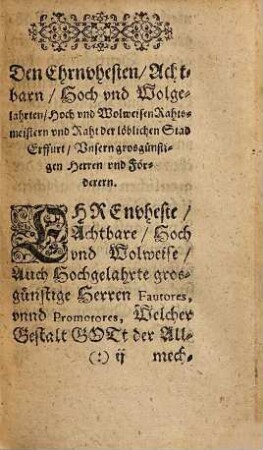 Den Ehrnvhesten/ Acht-
barn/ Hoch vnd Wolge-
lahrten/ Hoch vnd Wolweisen Rahts-
meistern vnd Raht der löblichen Stad
Erffurt/ Vnsern grosgünsti-
gen Herren vnd För-
derern.
EHREnvheste/
Achtbare/ Hoch
vnd Wolweise/
Auch Hochgelahrte gros-
günstige Herren Fautores,
vnnd Promotores, Welcher
Gestalt GOTt der All-
(:) ij mech-